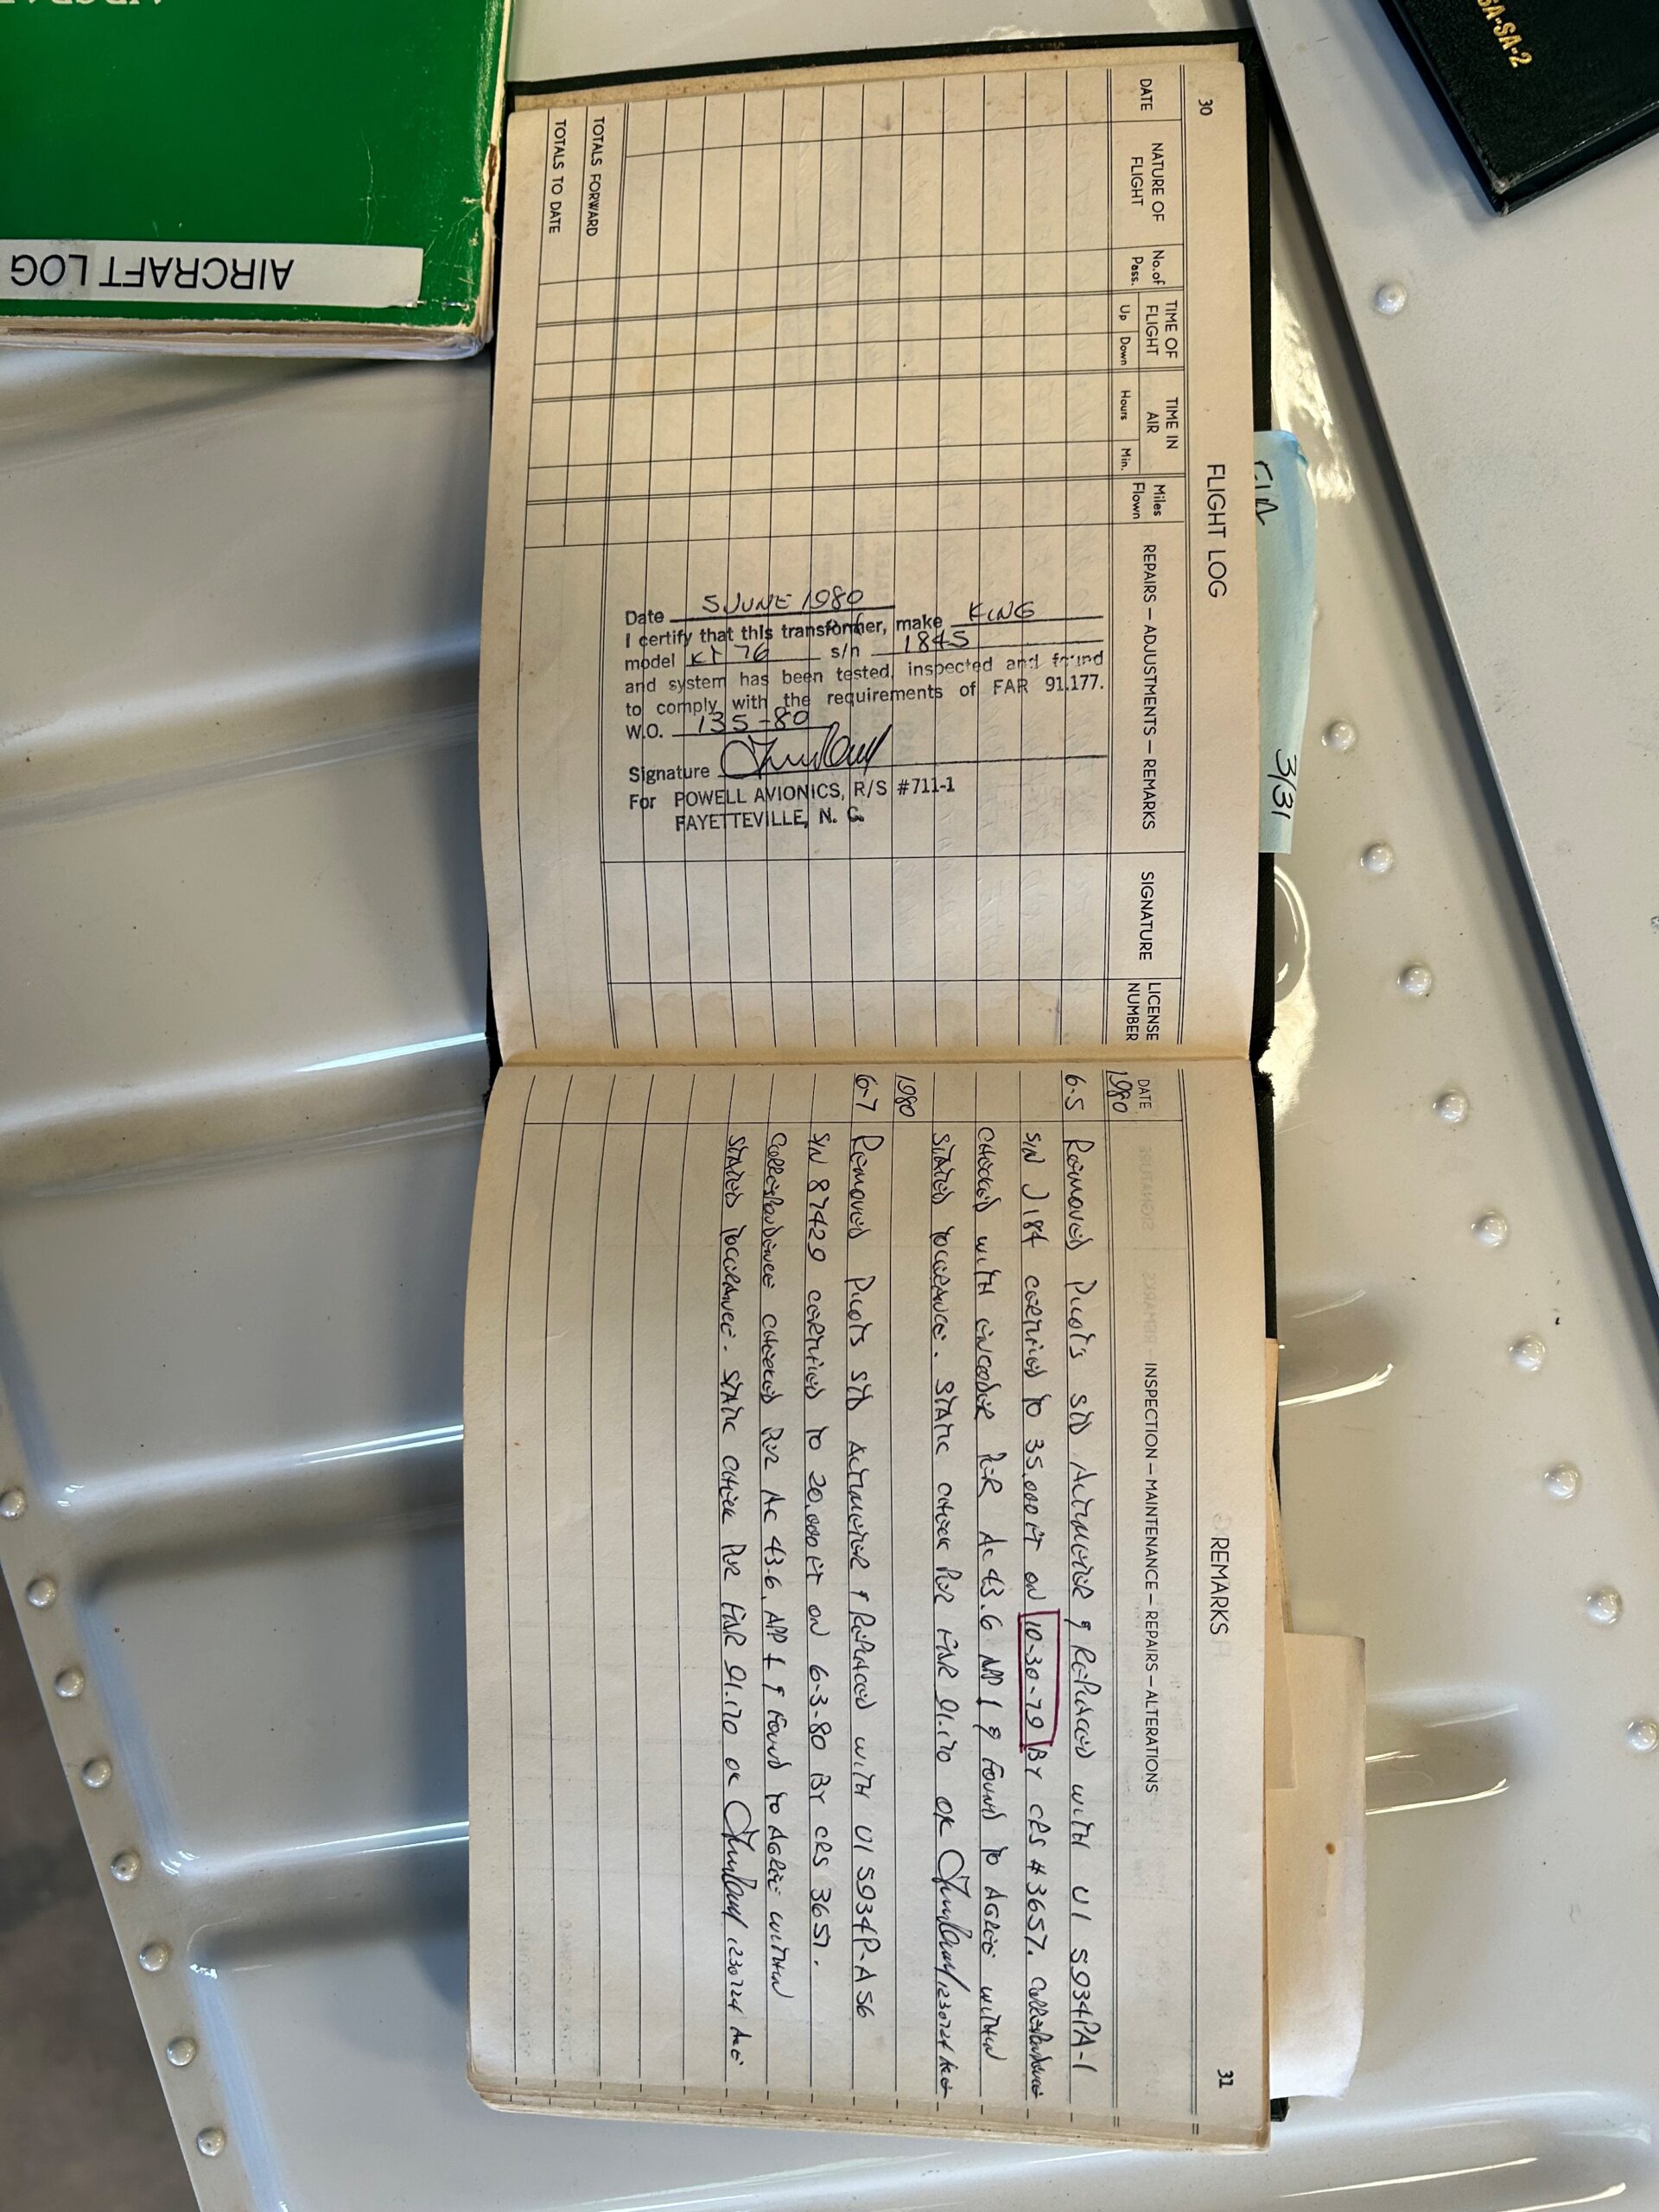 AIRCRAFT LOG
SA-SA-2
3/31
30
FLIGHT LOG
DATE
NATURE OF
FLIGHT
No. of
Pass.
TIME OF
FLIGHT
Up
Down
TIME IN
AIR
Hours
Min.
Miles
Flown
REPAIRS — ADJUSTMENTS — REMARKS
SIGNATURE
LICENSE
NUMBER
Date 5 JUNE 1980
I certify that this transformer, make KING
model KT 76 s/n 1845
and system has been tested, inspected and found
to comply with the requirements of FAR 91.177.
W.O. 135-80
Signature
For POWELL AVIONICS, R/S #711-1
FAYETTEVILLE, N. C.
TOTALS FORWARD
TOTALS TO DATE
REMARKS
31
DATE
INSPECTION — MAINTENANCE — REPAIRS — ALTERATIONS
1980
6-5 Removed Pilot's STD Altimeter & Replaced with UI 5934PA-1
S/N J184 certified to 35,000 FT on 10-30-79 By CRS #3657. Correspondence
checked with encoder Per AC 43.6 APP 1 & found to Agree within
stated tolerance. Static check Per FAR 91.170 OK 1230724
1980
6-7 Removed Pilots STD Altimeter & Replaced with UI 5934P-A56
S/N 87429 certified to 20,000 FT on 6-3-80 By CRS 3657.
Correspondence checked Per AC 43.6, APP 1 & found to Agree within
stated tolerance. Static check Per FAR 91.170 OK 1230724